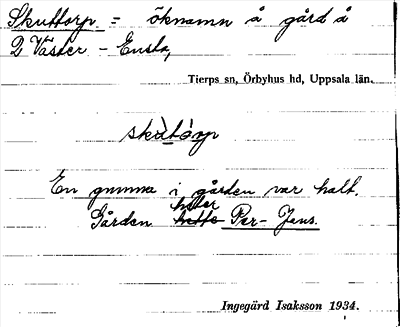 Skuttorp = öknamn å gård å
Väster - Ensta,
Tierps sn, Örbyhus hd, Uppsala län.
skùtórp
En gumma i gården var halt.
heter
Gården hette Per-Jens.
Ingegärd Isaksson 1934.